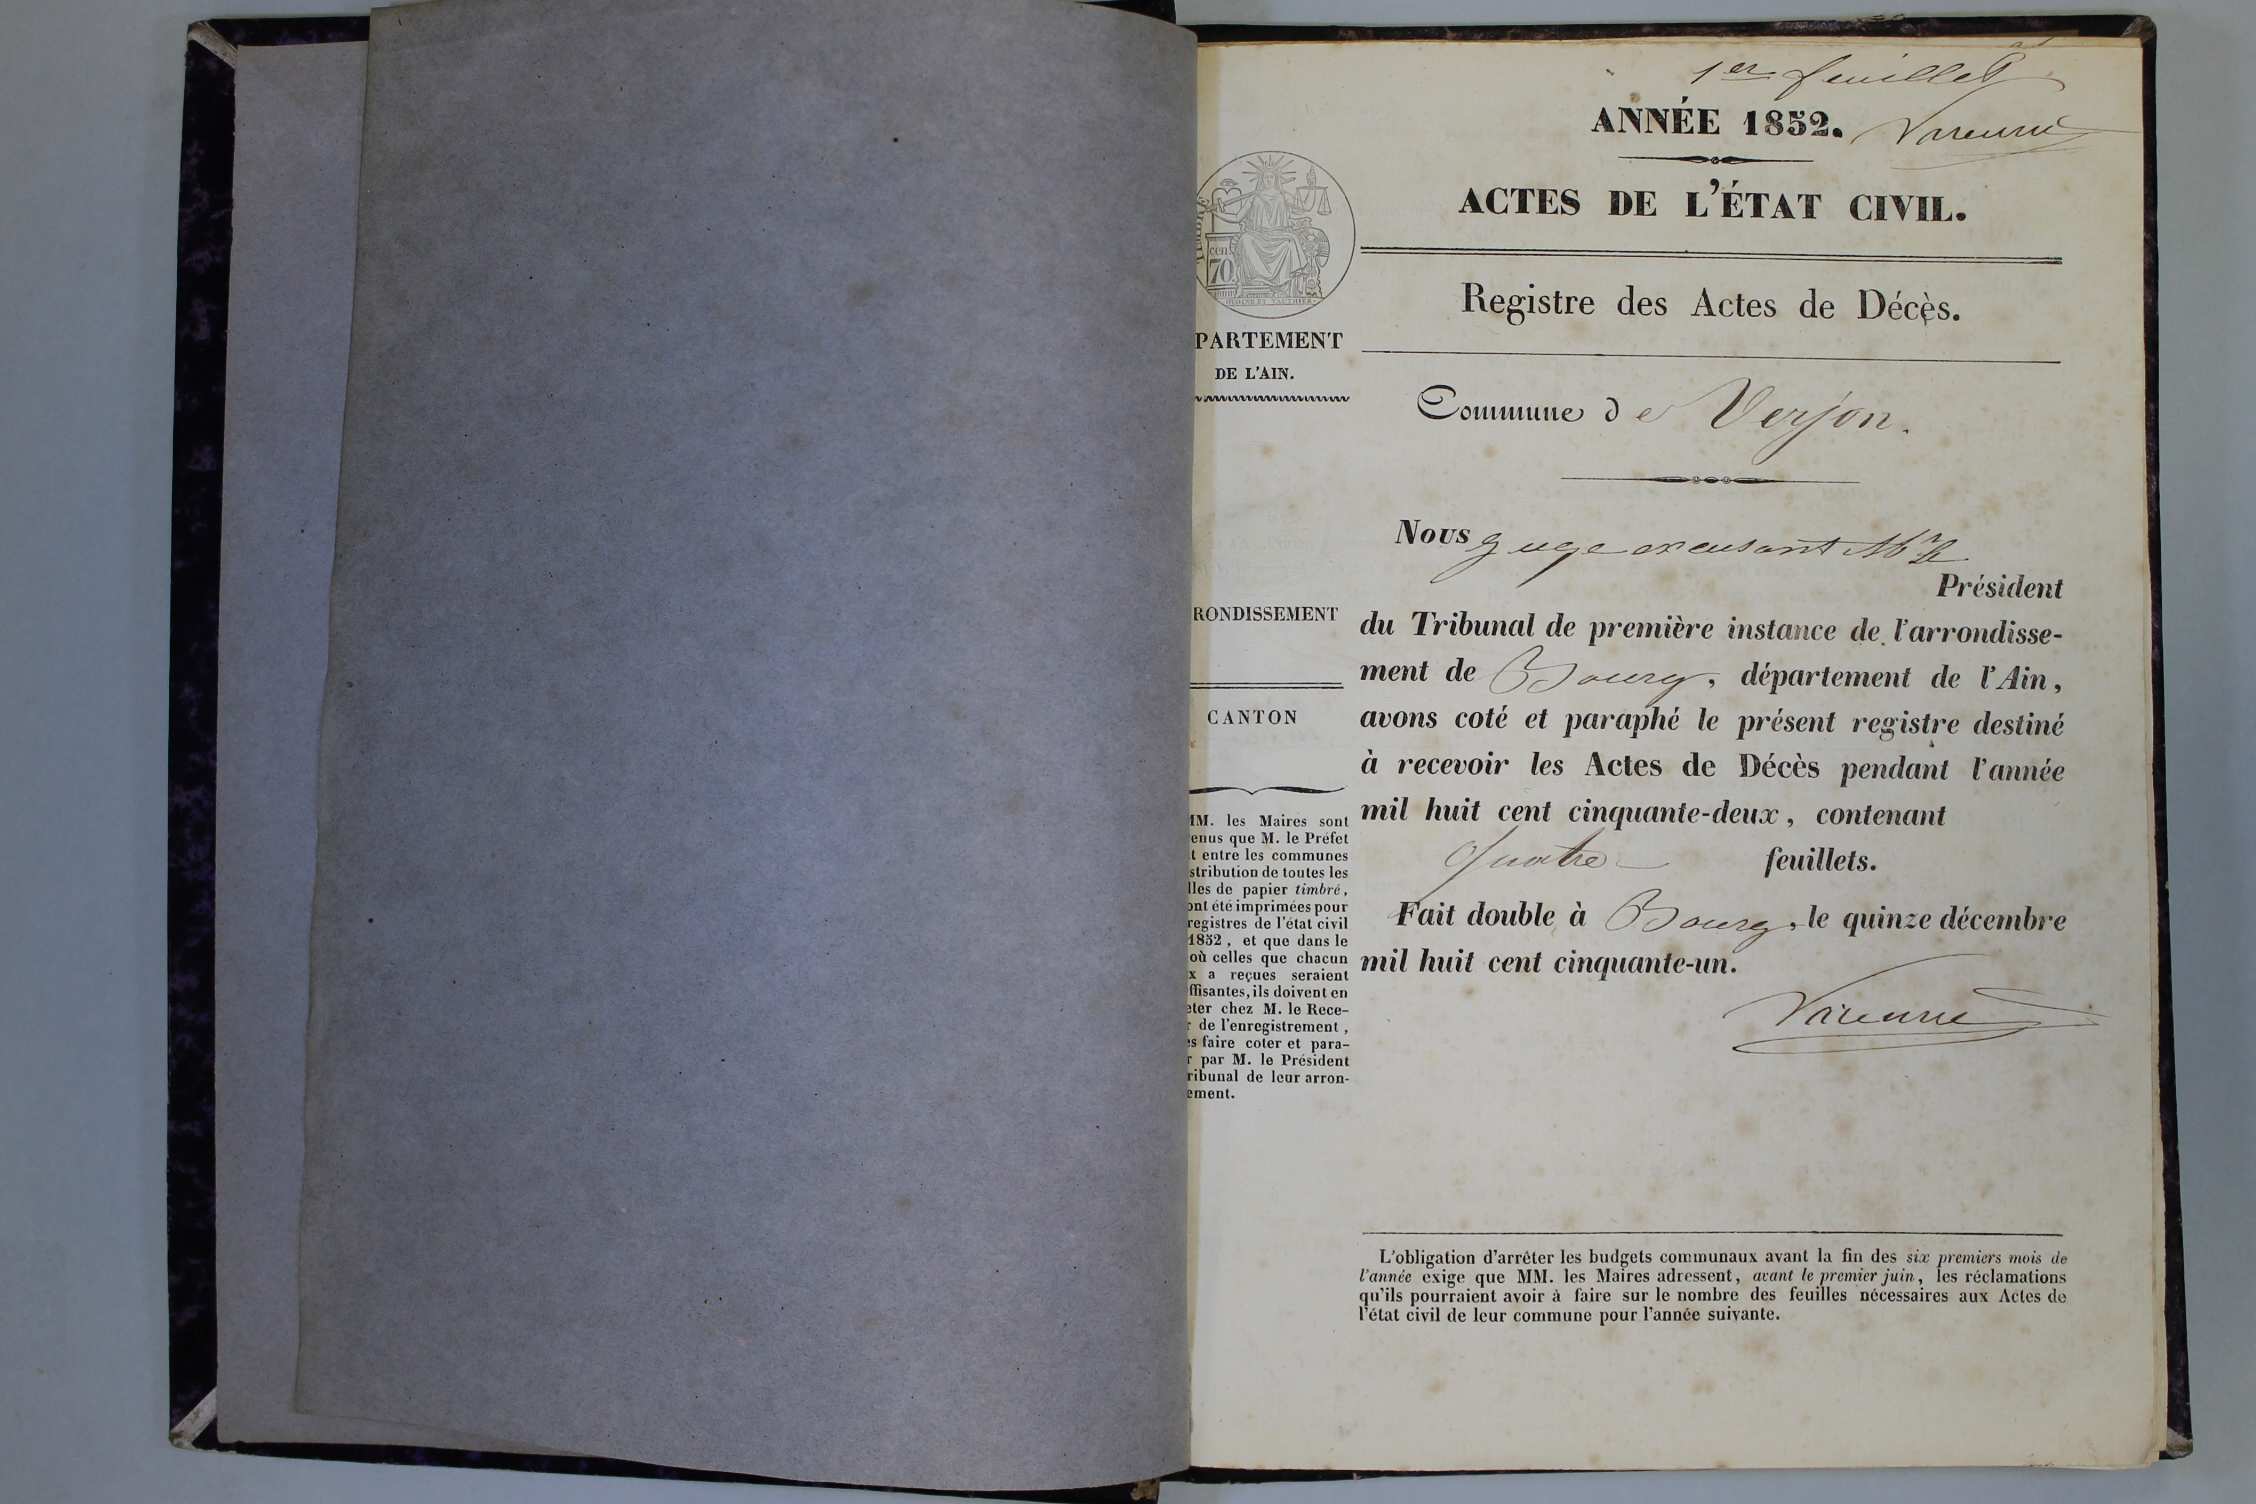 1er feuillet
ANNÉE 1852. Varenne
ACTES DE L'ÉTAT CIVIL.
TIMBRE
cen.
70
Registre des Actes de Décès.
PARTEMENT
DE L'AIN.
Commune de Verjon.
Nous juge excusant Mr le
Président
du Tribunal de première instance de l'arrondisse-
ment de Bourg, département de l'Ain,
avons coté et paraphé le présent registre destiné
à recevoir les Actes de Décès pendant l'année
mil huit cent cinquante-deux, contenant
Quatre feuillets.
Fait double à Bourg, le quinze décembre
mil huit cent cinquante-un.
Varenne
RONDISSEMENT
CANTON
MM. les Maires sont
enus que M. le Préfet
t entre les communes
stribution de toutes les
lles de papier timbré,
ont été imprimées pour
registres de l'état civil
1852, et que dans le
où celles que chacun
x a reçues seraient
ffisantes, ils doivent en
eter chez M. le Rece-
r de l'enregistrement,
es faire coter et para-
r par M. le Président
ribunal de leur arron-
ement.
L'obligation d'arrêter les budgets communaux avant la fin des six premiers mois de
l'année exige que MM. les Maires adressent, avant le premier juin, les réclamations
qu'ils pourraient avoir à faire sur le nombre des feuilles nécessaires aux Actes de
l'état civil de leur commune pour l'année suivante.